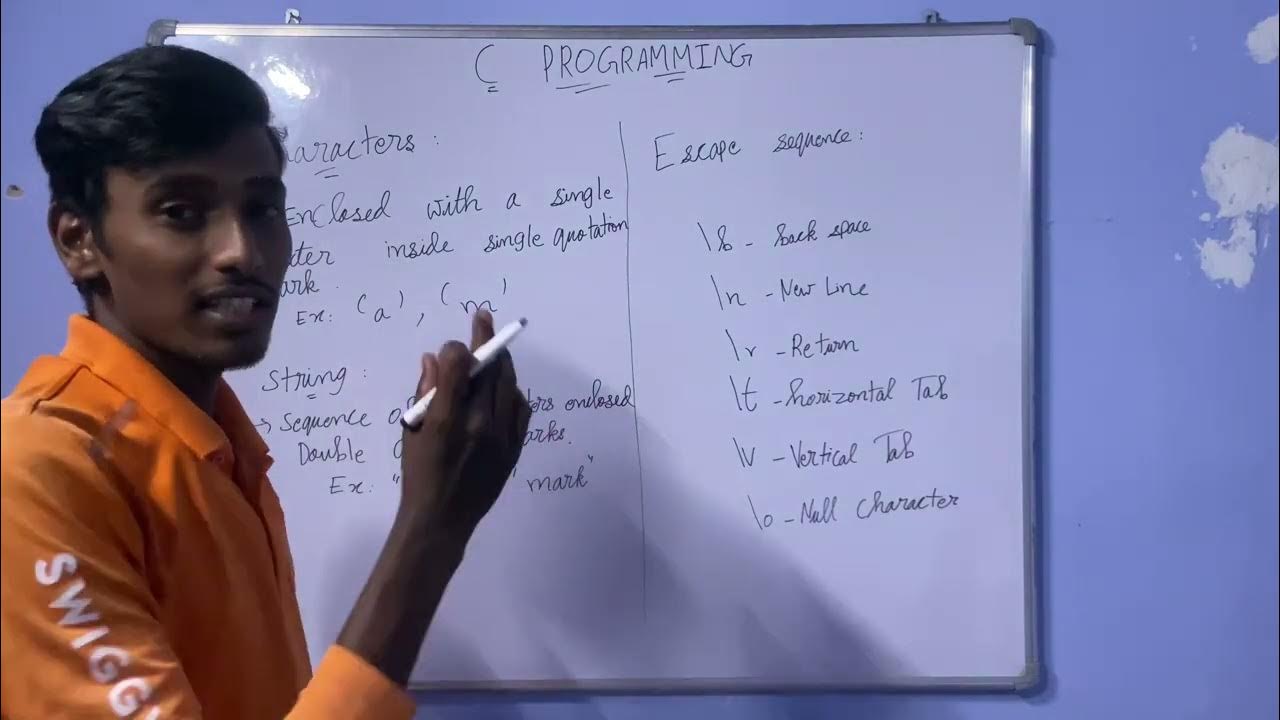 C PROGRAMMING
aracters :
Enclosed with a single
inside single quotation
ark.
Ex: 'a', 'm'
String :
→ Sequence of ters enclosed
Double arks.
Ex: " " mark"
Escape sequence :
\b - back space
\n - New Line
\r - Return
\t - horizontal Tab
\v - Vertical Tab
\o - Null character
SWIGGY